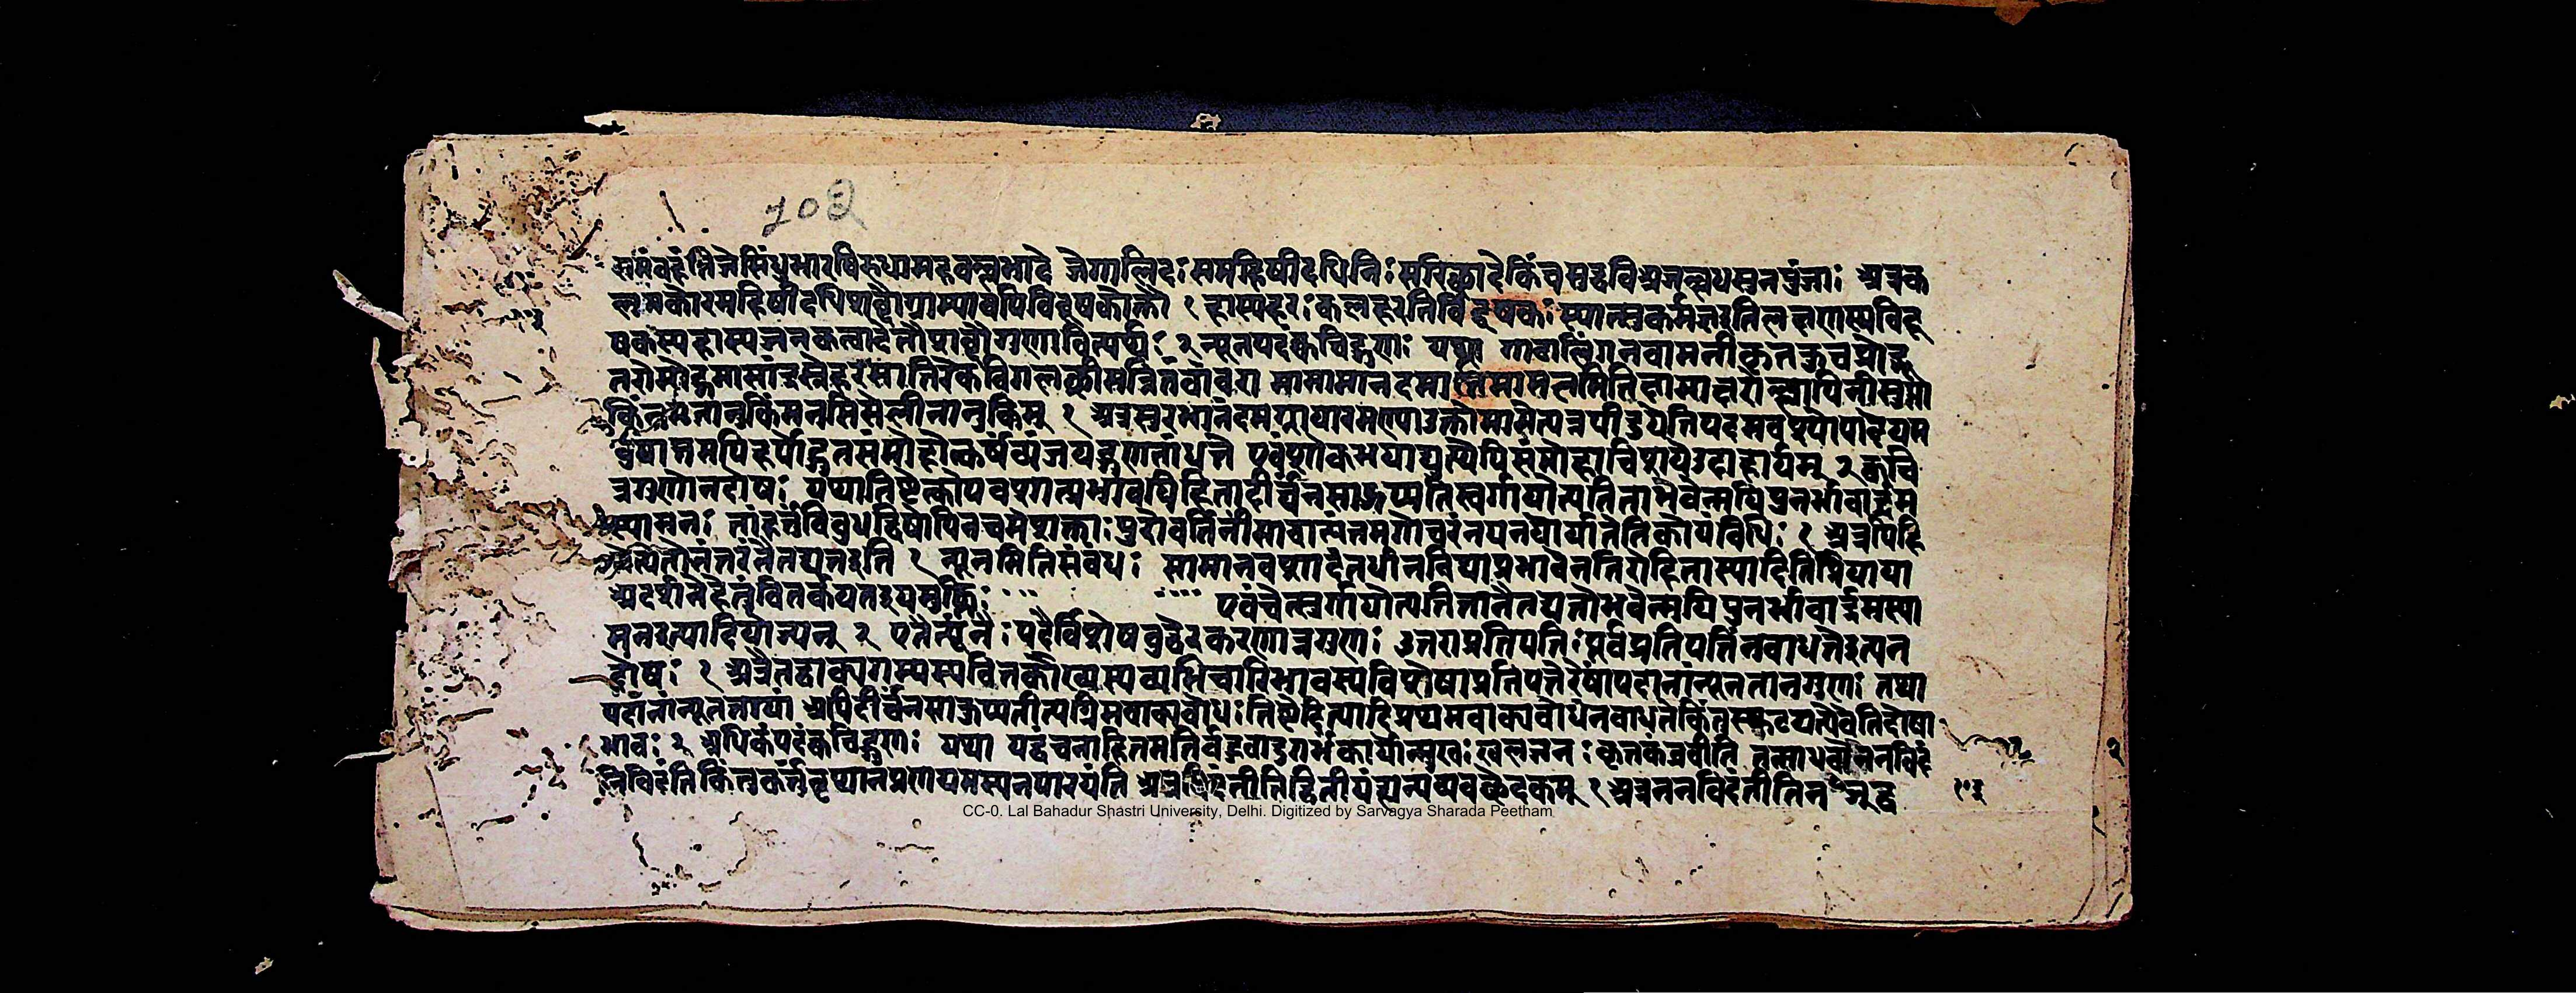 103
समंवहंतिजेसिंधुभारविरुधामहवल्लभादे जेगालिदः समहिषीदधिनिः सरिछादेकिंचमुद्धविअजल्लधसुनपुंजाः अत्रक
लमकोरमहिषीदधिशब्दौग्राम्यावपिविदूषकोक्तौ १ हास्यहरः कलहरतिर्विदूषकः स्यात्स्वकर्मज्ञइतिलक्षणस्यविदू
षकस्यहास्यजननकत्वादेतौशब्दौगुणावित्यर्थः २ न्यूनपदंक्वचिद्गुणः यथा गाढालिंगनवामनीकृतकुचप्रोद्भू
तरोमोद्गमासांद्रस्नेहरसातिरेकविगलच्छ्रीमन्नितंबांबरा मामामानदमातिमामलमितिक्षामाक्षरोल्लापिनीसुप्ता
किंनुमृतानुकिंमनसिमेलीनानुकिम् १ अत्रसुरभानंदमग्नायारमण्याउक्तौमामेत्यत्रपीडयेतिपदमवश्योपादेयम
नुपात्तमपिहर्षोद्गतसंमोहोत्कर्षव्यंजयद्गुणतांधत्ते एवंशोकभयाद्युत्थेपिसंमोहाधिशयेउदाहार्यम् २ क्वचि
न्नगुणोनदोषः यथातिष्ठेत्कोपवशात्प्रभावपिहितादीर्घंनसाकुप्यतिस्वर्गायोत्पतिताभवेन्मयिपुनर्भावार्द्रम
स्यामनः तांहर्तुंविबुधद्विषोपिनचमेशक्ताः पुरोवर्तिनींसाचात्यंतमगोचरंनयनयोर्यातेतिकोयंविधिः १ अत्रपिहि
तेत्यतोनंतरंनैतद्यतइति १ न्यूनमितिसंबंधः सामानवशादंतर्धानविद्याप्रभावेनतिरोहितास्यादितिप्रियाया
अदर्शनेहेतुंवितर्कयतइयमुक्तिः एवंचेत्स्वर्गायोत्पतितानैतद्यतोभवेन्मयिपुनर्भावार्द्रमस्या
मनइत्यादियोज्यन् २ एतैर्न्यूनैः पदैर्विशेषबुद्धेरकरणान्नगुणः उत्तराप्रतिपत्तिः पूर्वप्रतिपत्तिंनबाधतेइत्यन
दोषः १ अत्रैतद्वाक्यगम्यस्यवितर्काख्यस्यव्यभिचारिभावस्यविशेषाप्रतिपत्तेरेषांपदानांन्यूनतानगुणः तथा
पदानांन्यूनतायां अपिदीर्घंनसाकुप्यतीत्यग्रिमवाक्यबोधः तिष्ठेदित्यादिप्रथमवाक्यबोधेनबाध्यतेकिंतुस्फुटयत्येवेतिदोषा
भावः २ अधिकंपदंक्वचिद्गुणः यथा यद्वंचनाहितमतिर्बहुचाटुगर्भंकार्योन्मुखः खलजनः कृतकंब्रवीति तत्साधवोनननविदं
तिविदंतिकिंतुकर्तुंवृथाप्रणयमस्यनपारयंति अत्रविदंतीतिद्वितीयंत्वन्यव्यवच्छेदकम् १ अत्रननविदंतीतिन बुद्ध
CC-0. Lal Bahadur Shastri University, Delhi. Digitized by Sarvagya Sharada Peetham